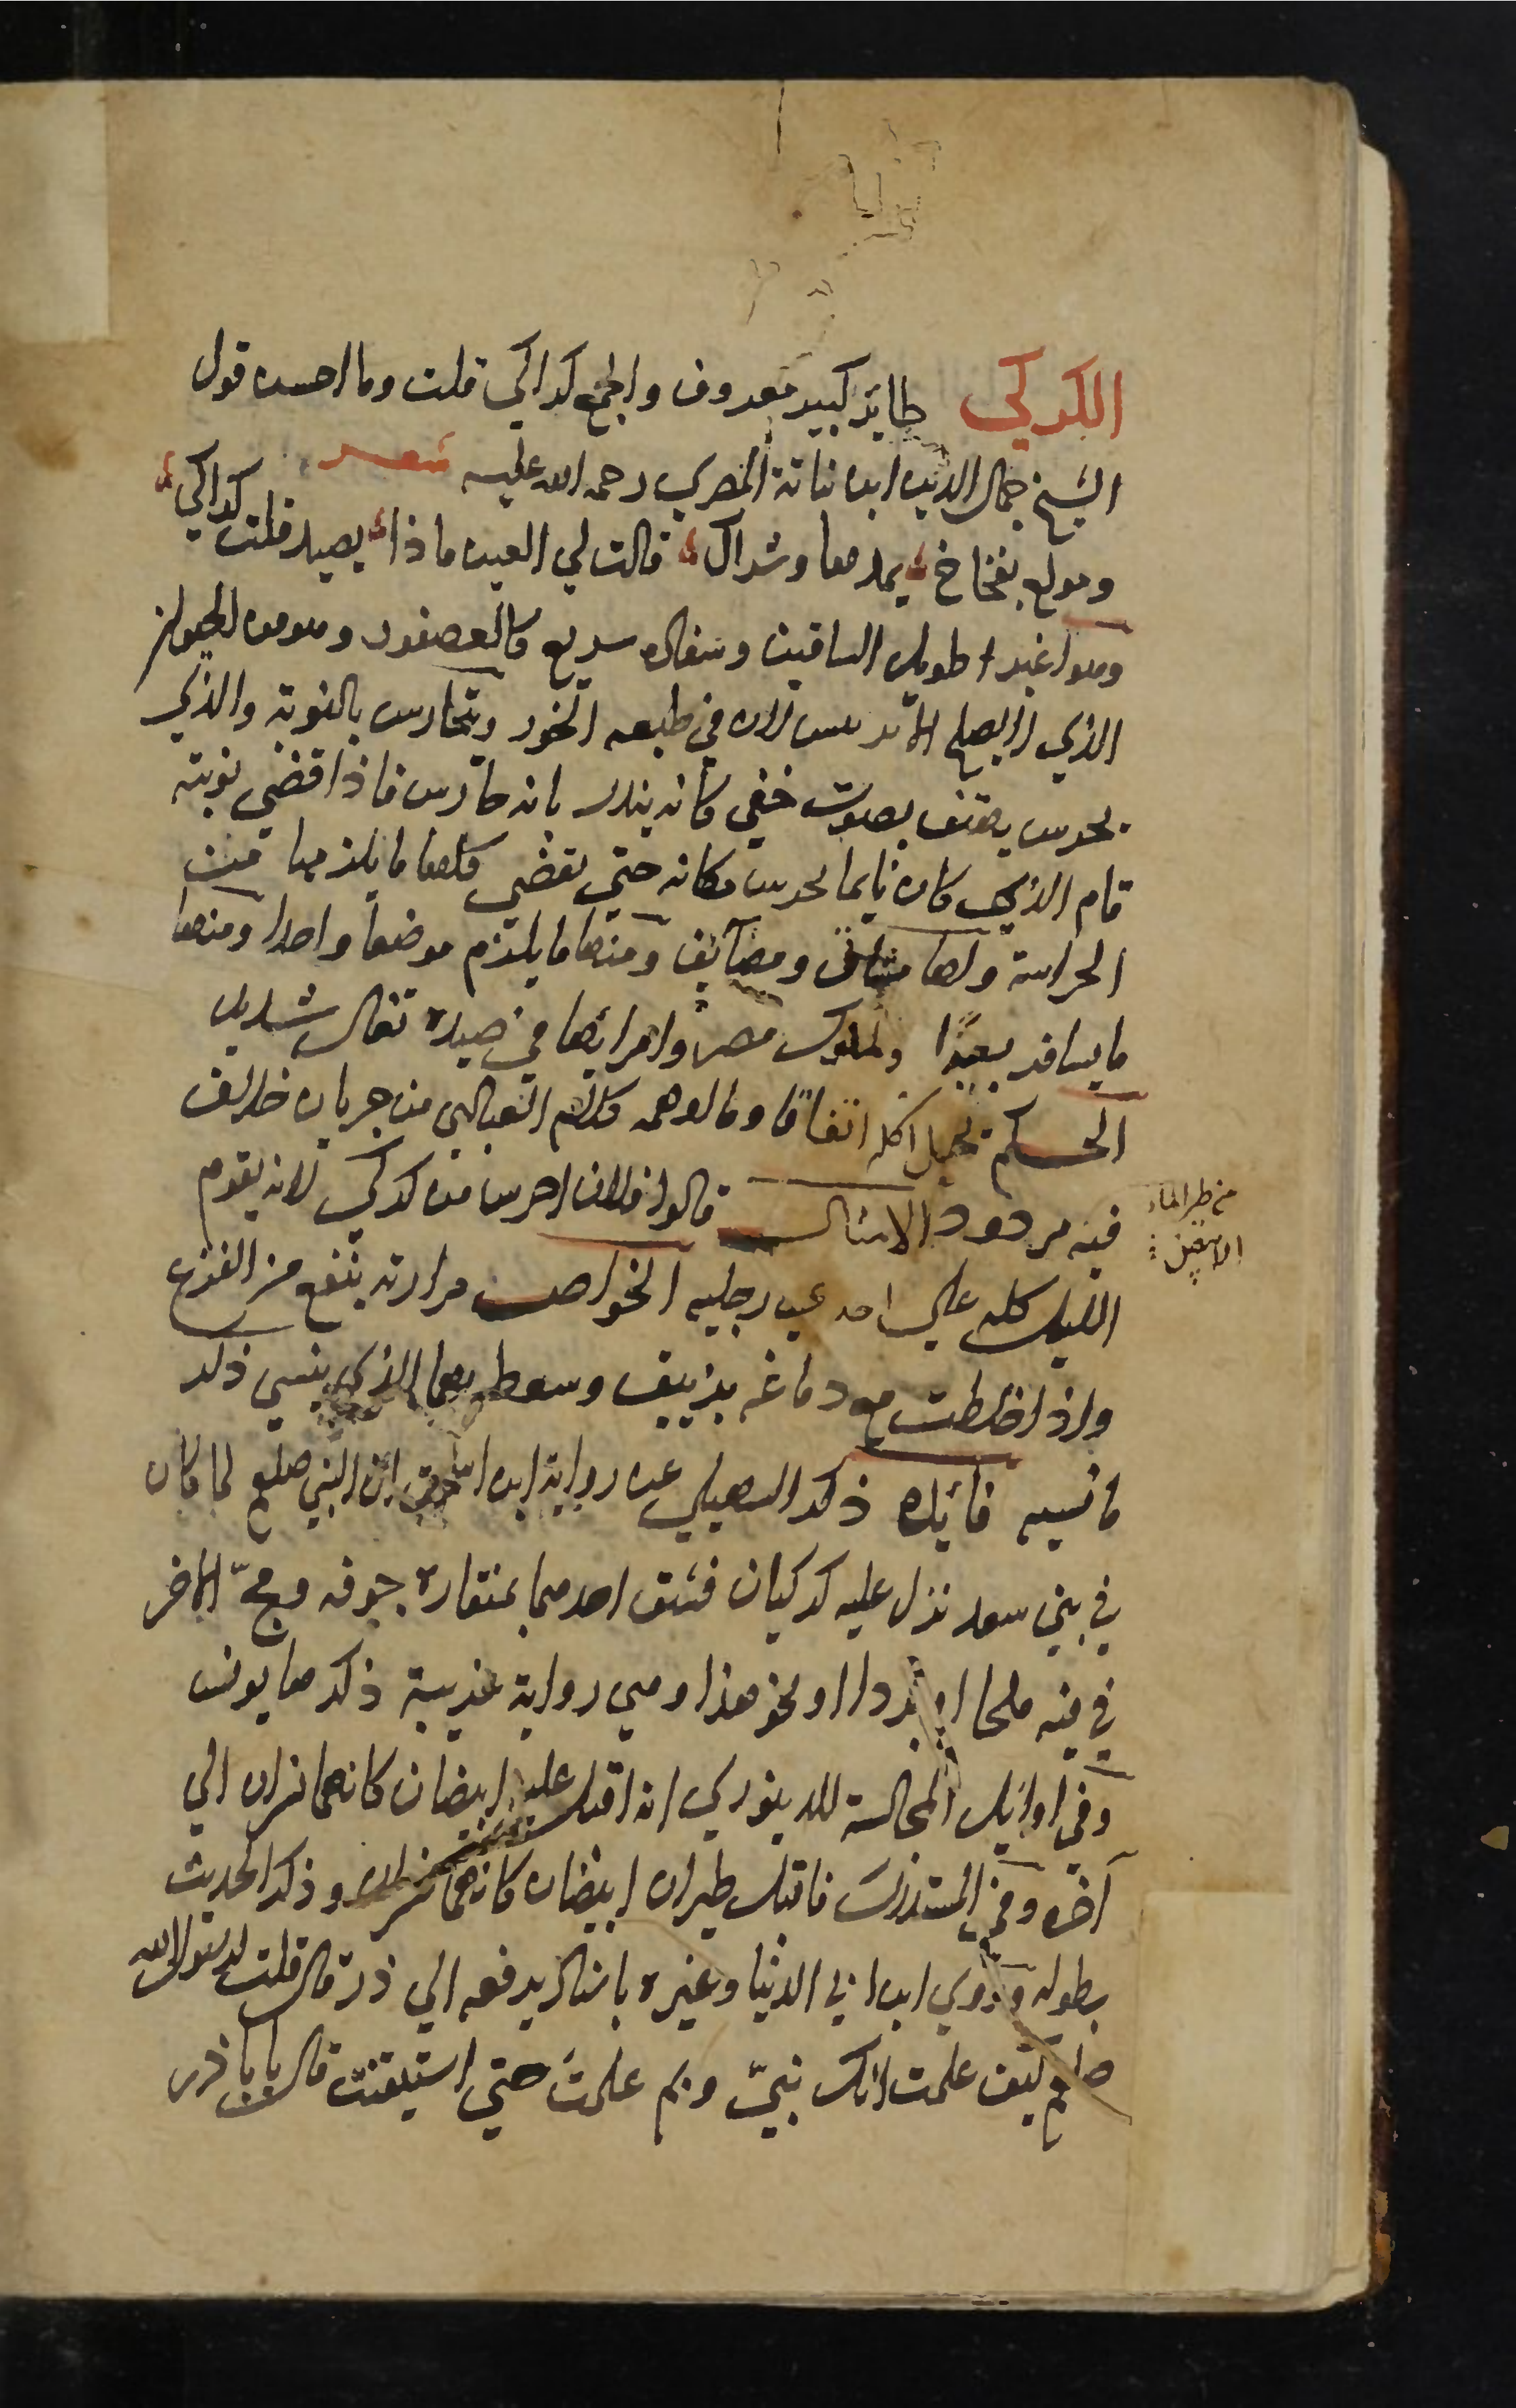 الكركي طاير كبير معروف والجمع كراكي قلت وما احسن قول
الشيخ جمال الدين ابن نباتة المصري رحمه الله عليه شعر
ومولع بفخاخ يمدها وشراك قالت لي العين ماذا يصيد قلت كراكي
وهو اغبر طويل الساقين وسفاده سريع كالعصفور وهو من الحيوان
الذي لا يصلح الا برئيس لان في طبعه الخور ويتحارس بالنوبة والذي
يحرس يهتف بصوت خفي كانه ينذر بانه حارس فاذا قضي نوبته
قام الذي كان نايما يحرس مكانه حتي تقضي كلها ما يلزمها من
الحراسة ولها مشاتي ومصآئف ومنها ما يلتزم موضعا واحدا ومنها
ما يسافر بعيدًا ولملوك مصر وامرائها في صيده تغال شديد
الحكم يحل اكله اتفاقًا وما اوهمه كلام العبادي من جريان خلاف
فيه مردود الامثال قالوا فلان احرس من كركي لانه يقوم
من طير الماء
الابيض
الليل كله علي احدي رجليه الخواص مرارته ينفع من القزع
واذا خلطت مع دماغه بزيبق وسعط بهما الذي ينسي ذكر
ما نسيه فائدة ذكر السهيلي عن رواية ابن اسحاق ان النبي صلعم لما كان
في بني سعد نزل عليه كركيان فشق احدهما بمنقاره جوفه ومجّ الاخر
في فيه ملحا او بردا او نحو هذا وهي رواية غريبة ذكرها يونس
وفي اوايل المجالسة للدينوري انه اقبل عليه ابيضان كانهما نسران الي
آخره وفي المستدرك فاقبل طيران ابيضان كانهما نسران وذكر الحديث
بطوله وروي ابن ابي الدنيا وغيره باسناد يرفعه الي ذر قال قلت لرسول الله
صلعم كيف علمت انك نبيّ وبم علمتَ حتي استيقنت قال يا باذر